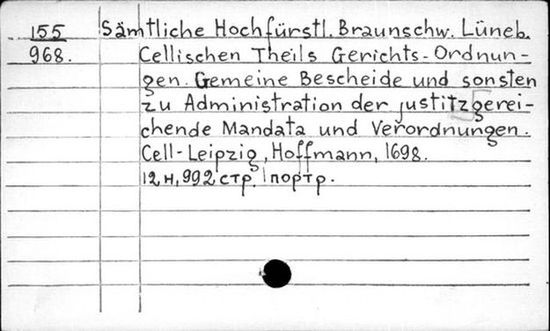 155 Sämtliche Hochfürstl. Braunschw. Lüneb.
968. Cellischen Theils Gerichts-Ordnun-
gen. Gemeine Bescheide und sonsten
zu Administration der justitz gerei-
chende Mandata und Verordnungen.
Cell-Leipzig, Hoffmann, 1698.
12 н, 992 стр. 1 портр.